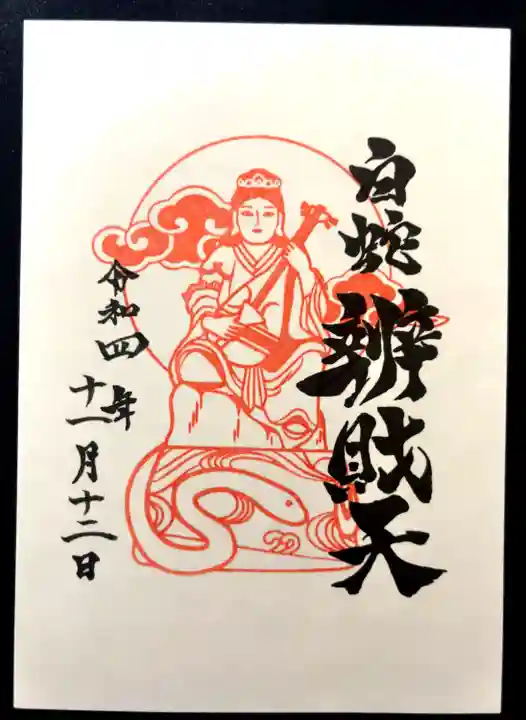 白蛇辨財天
令和四年
十一月十二日